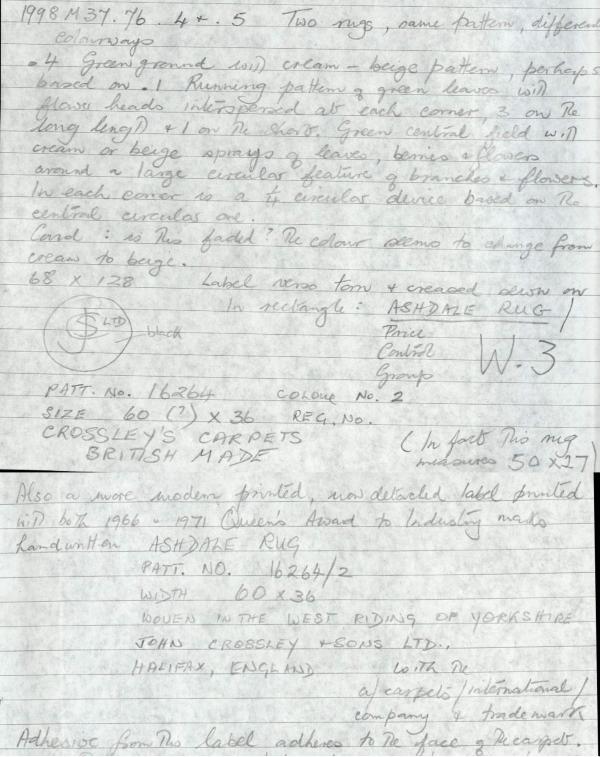 1998 M37.76 .4 + .5 Two rugs, same pattern, different
colourways
.4 Green ground with cream - beige pattern, perhaps
based on .1 Running pattern of green leaves with
flower heads interspersed at each corner, 3 on the
long length + 1 on the short. Green central field with
cream or beige sprays of leaves, berries + flowers
around a large circular feature of branches + flowers.
In each corner is a 1/4 circular device based on the
central circular one.
Cond : is this faded? The colour seems to change from
cream to beige.
68 x 128 Label verso torn + creased sewn on
In rectangle: ASHDALE RUG /
JS LTD black
Price
Control
Group W.3
PATT. No. 16264 COLOUR No. 2
SIZE 60 (?) x 36 REG. No.
CROSSLEY'S CARPETS
BRITISH MADE
(In fact this rug
measures 50 x 27)
Also a more modern printed, now detached label printed
with both 1966 + 1971 Queen's Award to Industry marks
handwritten ASHDALE RUG
PATT. NO. 16264/2
WIDTH 60 x 36
WOVEN IN THE WEST RIDING OF YORKSHIRE
JOHN CROSSLEY + SONS LTD.,
HALIFAX, ENGLAND with the
a/ carpets / international /
company + trademark
Adhesive from this label adheres to the face of the carpet.